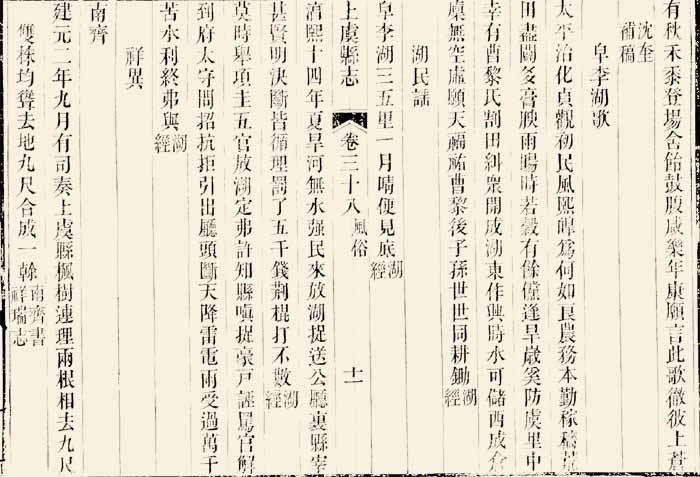 有秋禾黍登場含飴鼓腹咸樂年康願言此歌徹彼上蒼
沈奎
補稿
皁李湖歌
太平治化貞觀初民風熙皥爲何如良農務本勤稼穡荒
田盡闢多膏腴雨暘時若穀有餘僮逢旱歲奚防虞里中
幸有曹黎氏割田糾衆開成湖東作興時水可儲西成倉
廪無空虛願天福祐曹黎後子孫世世同耕鋤湖經
湖民謡
皁李湖三五里一月晴便見底湖經
上虞縣志
卷三十八
風俗
十一
淳熙十四年夏旱河無水强民來放湖捉送公廳裏縣宰
甚賢明決斷皆循理罰了五千錢荆棍打不數湖經
莫時舉項圭五官放湖定弗許知縣嗔捉豪戸誣罵官解
到府太守問招抗拒引出廳頭斷天降雷電雨受過萬千
苦水利終弗與湖經
祥異
南齊
建元二年九月有司奏上虞縣楓樹連理兩根相去九尺
雙株均聳去地九尺合成一榦南齊書祥瑞志